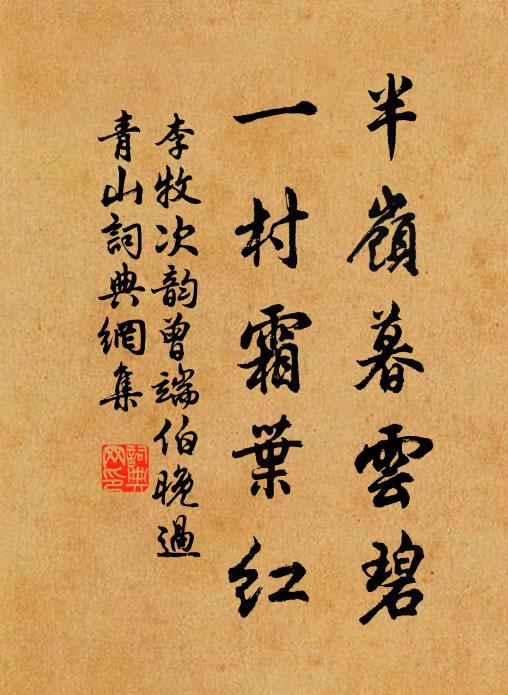 半嶺暮雲碧
一村霜葉紅
李牧次韵曾端伯晚過
青山詞典網集
詞典
网印